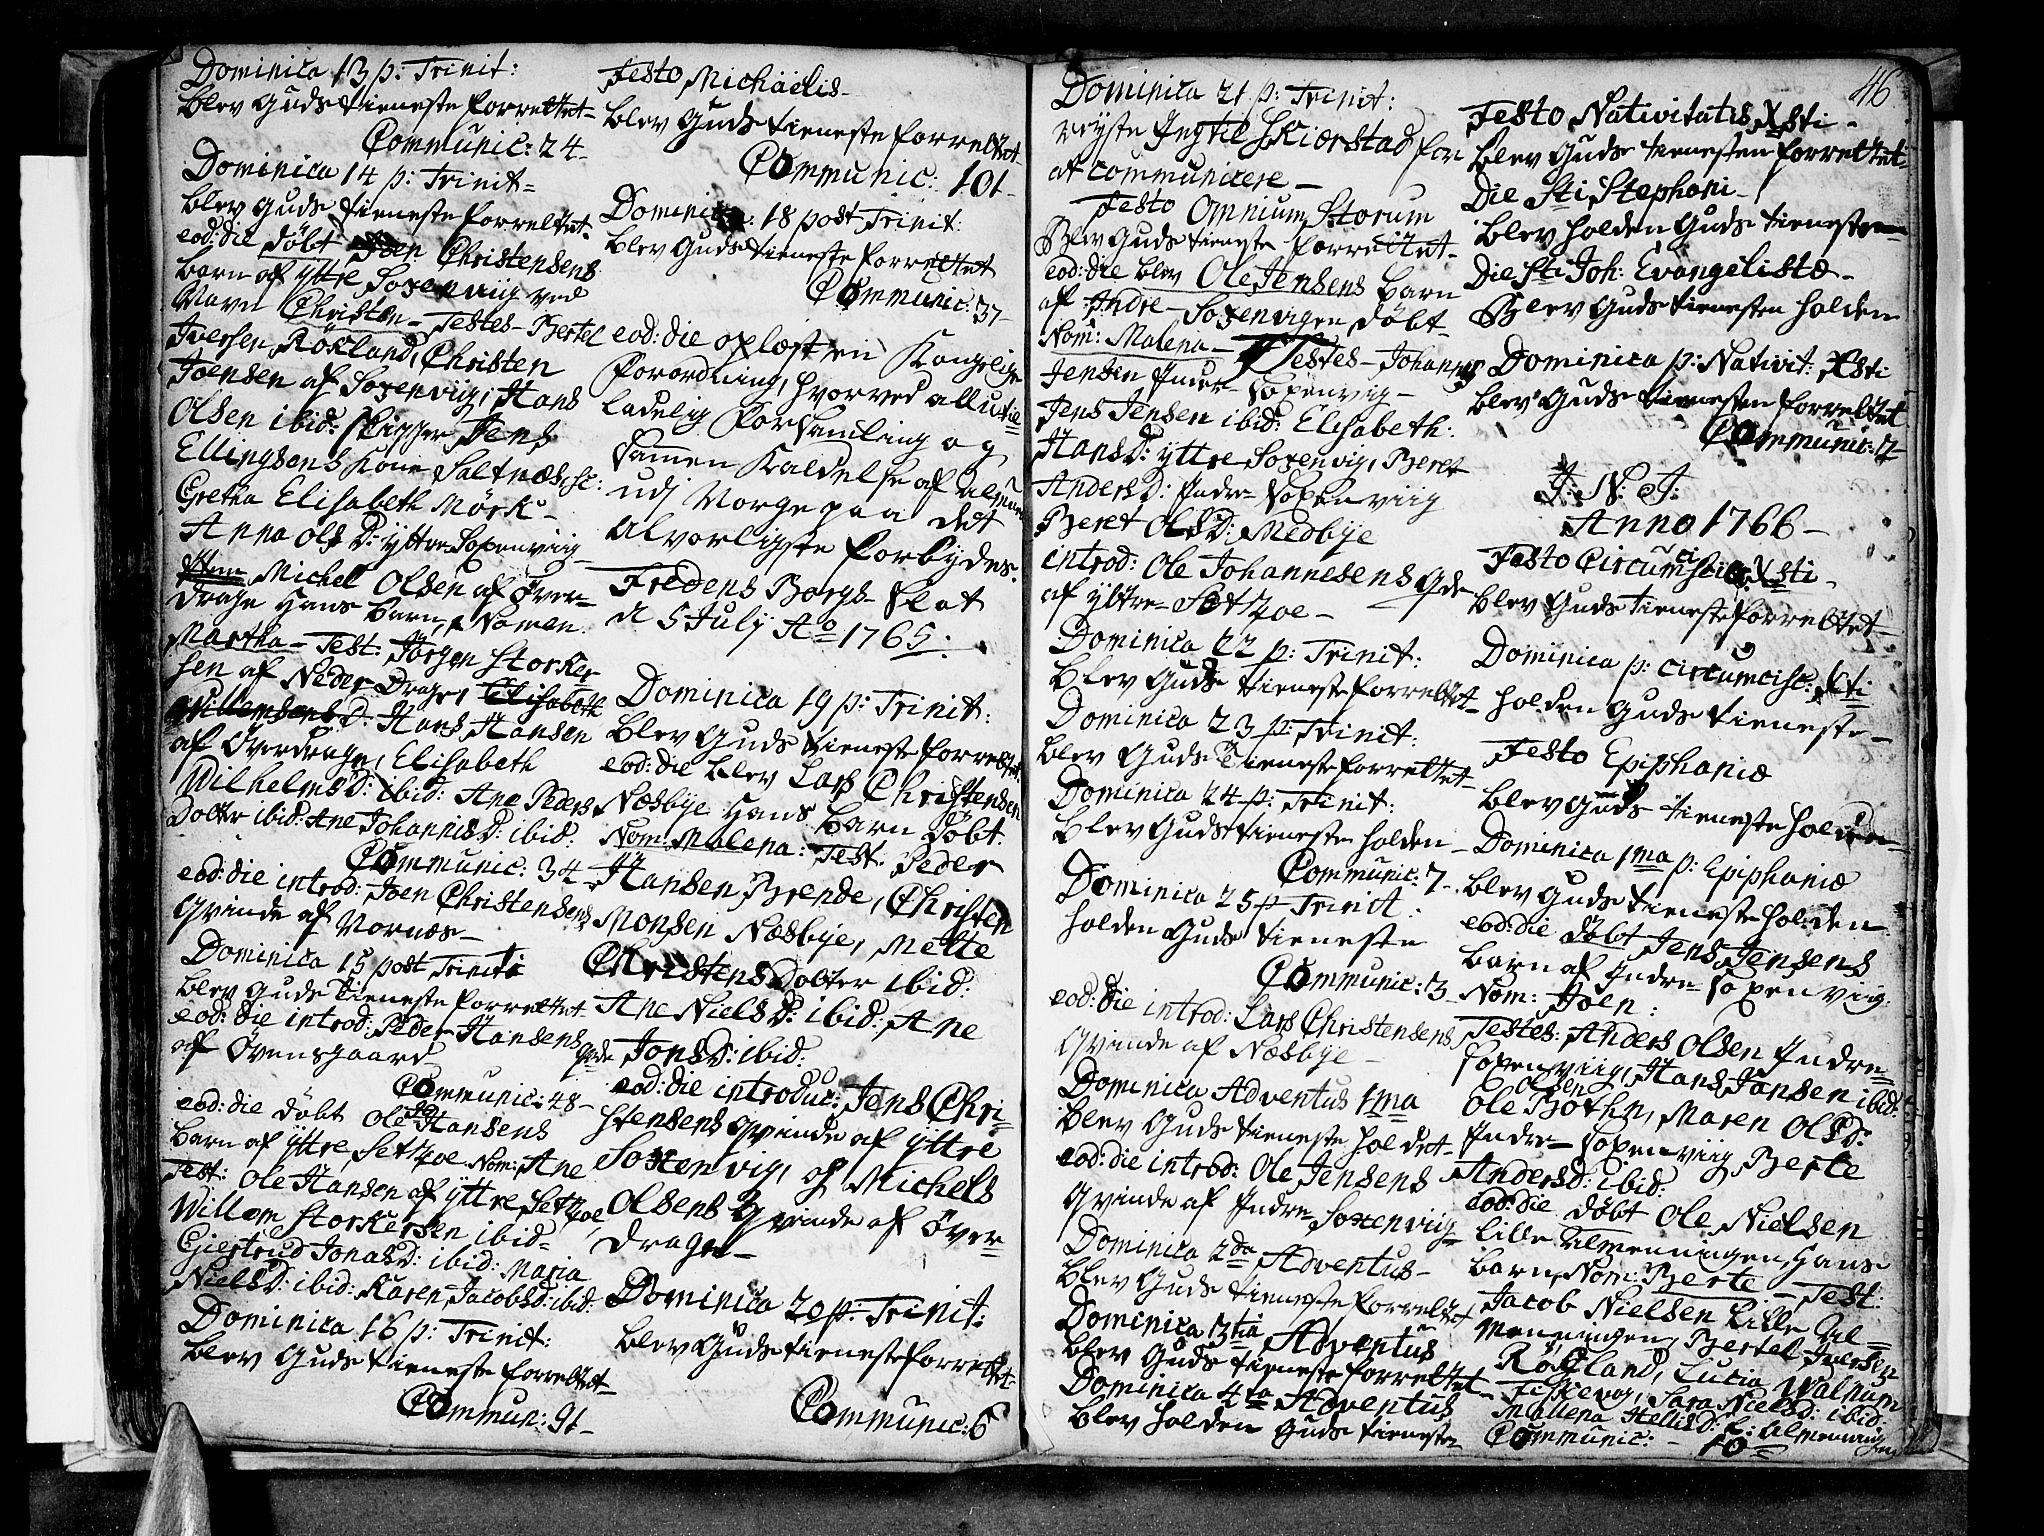 Dominica 13 p: Trinit:
blev Guds tieneste forrettet
Communic: 24
Dominica 14 p: Trinit=
blev Guds tieneste forrettet.
eod: die döbt Joen Christensens
barn af Yttre Soxenviig ved
Navn Christen – Testes – Bertel
Iversen Röxland, Christen
Joensen af Soxenviig, Hans
Olsen ibid: Jens
Ellingsens Kone Saltnæs
Gretha Elisabeth Mörk –
Anna Ols D: yttre Soxenviig
Item Michel Olsen af Över=
drage Hans barn, Nomen
Martha – Test: Jörgen Storker
sen af Neder Drage, Elisabeth
Willemsens D: Hans Hansen
af Överdrage, Elisabeth
WilhelmsD: ibid: Ane Peders
Dotter ibid: Ane Johannis D: ibid:
Communic: 34
eod: die introd: Joen Christensens
Qvinde af Vornæs –
Dominica 15 post Triniti
blev Guds tieneste forrettet
eod: die introd: Peder Hansens
af Övensgaard Qvde
Communic: 48 –
eod: die döbt Ole Hansens
barn af Yttre Settzoe Nom: Ane
Test: Ole Hansen af yttre Settzoe
Willom Storkersen ibid=
Giertrud JonasD: ibid: Maria
NielsD: ibid: Karen JacobsD: ibid:
Dominica 16 p: Trinit:
blev Guds tieneste forrettet
Commun: 91 –
Festo Michaelis –
blev Guds tieneste forrettet
Communic: 101 –
Dominica: 18 post Trinit:
blev Guds tieneste forrettet
Communic: 37
eod: die oplæst en Kongelig
Forordning, hvorved all utie=
ladelig Forsamling og
Sammen Kaldelse af Almuen
udj Norge paa det
alvorligste forbydes.
Fredens Borgs – Slot
d 5 Julij Ao 1765:
Dominica 19 p: Trinit:
blev Guds tieneste forrettet
eod: die blev Lars Christensen
Næsbye Hans Barn döbt.
Nom: Malena: Test: Peder
Hansen Brende, Christen
Monsen Næsbye, Mette
Christens Dotter ibid:
Ane NielsD: ibid: Ane
JonsD: ibid:
eod: die introduc: Jens Chri=
stensens Qvinde af yttre
Soxenvig, og Michels
Olsens Qvinde af Över=
drage –
Dominica 20 p: Trinit:
blev Guds tieneste forrettet
Communic: 6
46
Dominica 21 p: Trinit:
reyste Ingtil Skiørstad for
at communicere –
Festo Omnium Storum
Blev Guds tieneste forrettet –
eod: die blev Ole Jensens Barn
af Indre – Soxenvigen döbt
Nom: Malena – Testes – Johannes
Jensen Inder – Soxenvig –
Jens Jensen ibid: Elisabeth:
HansD: yttre Soxenvig, Beret
AndersD: Indre – Soxenviig
Beret OlsD: Medbye
introd: Ole Johannesens Qde
af yttre – Settzoe –
Dominica 22 p: Trinit:
blev Guds tieneste forrettet –
Dominica 23 p: Trinit:
blev Guds Tieneste forrettet –
Dominica 24 p: Trinit:
blev Guds tieneste holden –
Communic: 7 –
Dominica 25 p Trinit:
holden Guds tieneste
Communic: 3 –
eod: die introd: Lars Christensens
Qvinde af Næsbye –
Dominica Adventus 1ma
blev Guds tieneste holdet –
eod: die introd: Ole Jensens
Qvinde af Indre Soxenviig –
Dominica 2da Adventus –
blev Guds tieneste forrettet
Dominica 3tia Adventus
blev Guds tieneste forrettet –
Dominica 4ta Adventus
blev holden Guds tieneste
Festo Nativitatis Xsti –
blev Guds tienesten forrettet
Die Sti Stephani –
blev holden Guds tienesten
Die Sti Joh: Evangelistæ –
Blev Guds tienesten holden
Dominica p: Nativit: Xsti
blev Guds tienesten forrettet
Communic: 7
J: N: J:
Anno 1766 –
Festo Circumcis: Xsti –
blev Guds tieneste forrettet –
Dominica p: circumcis: Xti
holden Guds tieneste –
Festo Epiphaniæ
blev Guds tieneste holden
Dominica 1ma p: Epiphaniæ
blev Guds tieneste holden
eod: die döbt Jens Jensens
barn af Indre – Soxenviig:
Nom: Joen:
Testes: Anders Olsen Indre –
Soxenviig, Hans Jansen ibid:
Olsen
Ole Bothn, Maren OlsD:
Indre – Soxenviig Berte
AndersD: ibid:
eod: die döbt Ole Nielsen
Lille Almenningen, Hans
barn, Nom: Berte – Test:
Jacob Nielsen Lille Al=
menningen, Bertel Iversen
Röxland, Lucia Walnum
Sara NielsD: ibid:
Mallena HellisD: L: Almenning
Communic: – 10 –